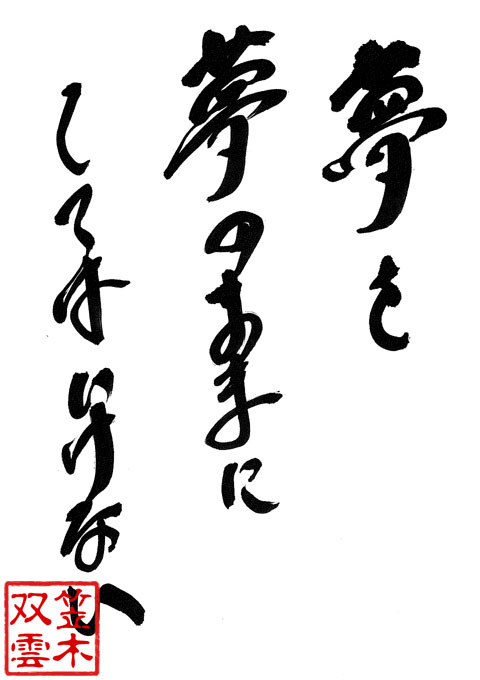 夢を
夢のままに
してはいけない
笠木
双雲